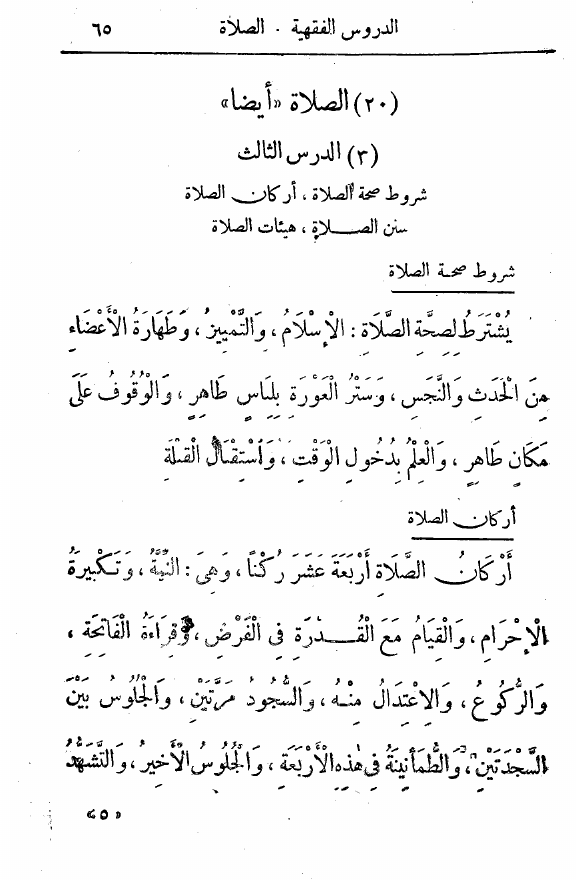 الدروس الفقهية . الصلاة ٦٥
(٢٠) الصلاة «أيضا»
(٣) الدرس الثالث
شروط صحة الصلاة ، أركان الصلاة
سنن الصلاة ، هيئات الصلاة
شروط صحة الصلاة
يُشْتَرَطُ لِصِحَّةِ الصَّلَاةِ : الْإِسْلَامُ ، وَالتَّمْيِيزُ ، وَطَهَارَةُ الْأَعْضَاءِ
مِنَ الْحَدَثِ وَالنَّجَسِ ، وَسَتْرُ الْعَوْرَةِ بِلِبَاسٍ طَاهِرٍ ، وَالْوُقُوفُ عَلَى
مَكَانٍ طَاهِرٍ ، وَالْعِلْمُ بِدُخُولِ الْوَقْتِ ، وَاسْتِقْبَالُ الْقِبْلَةِ
أركان الصلاة
أَرْكَانُ الصَّلَاةِ أَرْبَعَةَ عَشَرَ رُكْنًا ، وَهِيَ : النِّيَّةُ ، وَتَكْبِيرَةُ
الْإِحْرَامِ ، وَالْقِيَامُ مَعَ الْقُدْرَةِ فِي الْفَرْضِ ، وَقِرَاءَةُ الْفَاتِحَةِ ،
وَالرُّكُوعُ ، وَالِاعْتِدَالُ مِنْهُ ، وَالسُّجُودُ مَرَّتَيْنِ ، وَالْجُلُوسُ بَيْنَ
السَّجْدَتَيْنِ ، وَالطُّمَأْنِينَةُ فِي هٰذِهِ الْأَرْبَعَةِ ، وَالْجُلُوسُ الْأَخِيرُ ، وَالتَّشَهُّدُ
«٥»